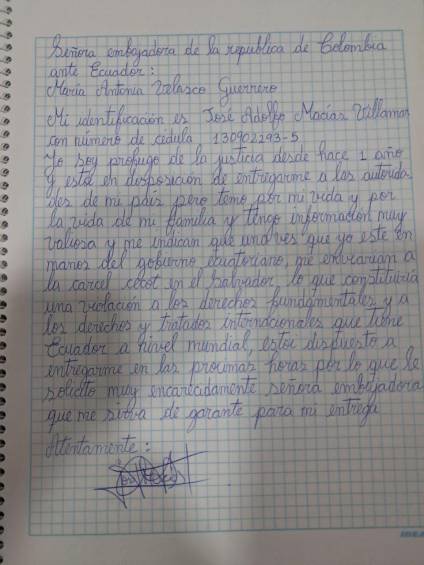 Señora embajadora de la republica de Colombia
ante Ecuador:
María Antonia Velasco Guerrero
Mi identificación es José Adolfo Macías Villamar
con número de cédula 130902293-5
Yo soy profugo de la justicia desde hace 1 año
y estoi en disposición de entregarme a las autorida-
des de mi país pero temo por mi vida y por
la vida de mi familia y tengo información muy
valiosa y me indican que una ves que yo este en
manos del gobierno ecuatoriano, me enviarían a
la carcel cecot en el Salvador, lo que constituiría
una violación a los derechos fundamentales y a
los derechos y tratados internacionales que tiene
Ecuador a nivel mundial, estoi dispuesto a
entregarme en las proximas horas por lo que le
solicito muy encarecidamente señora embajadora
que me sirva de garante para mi entrega
Atentamente: